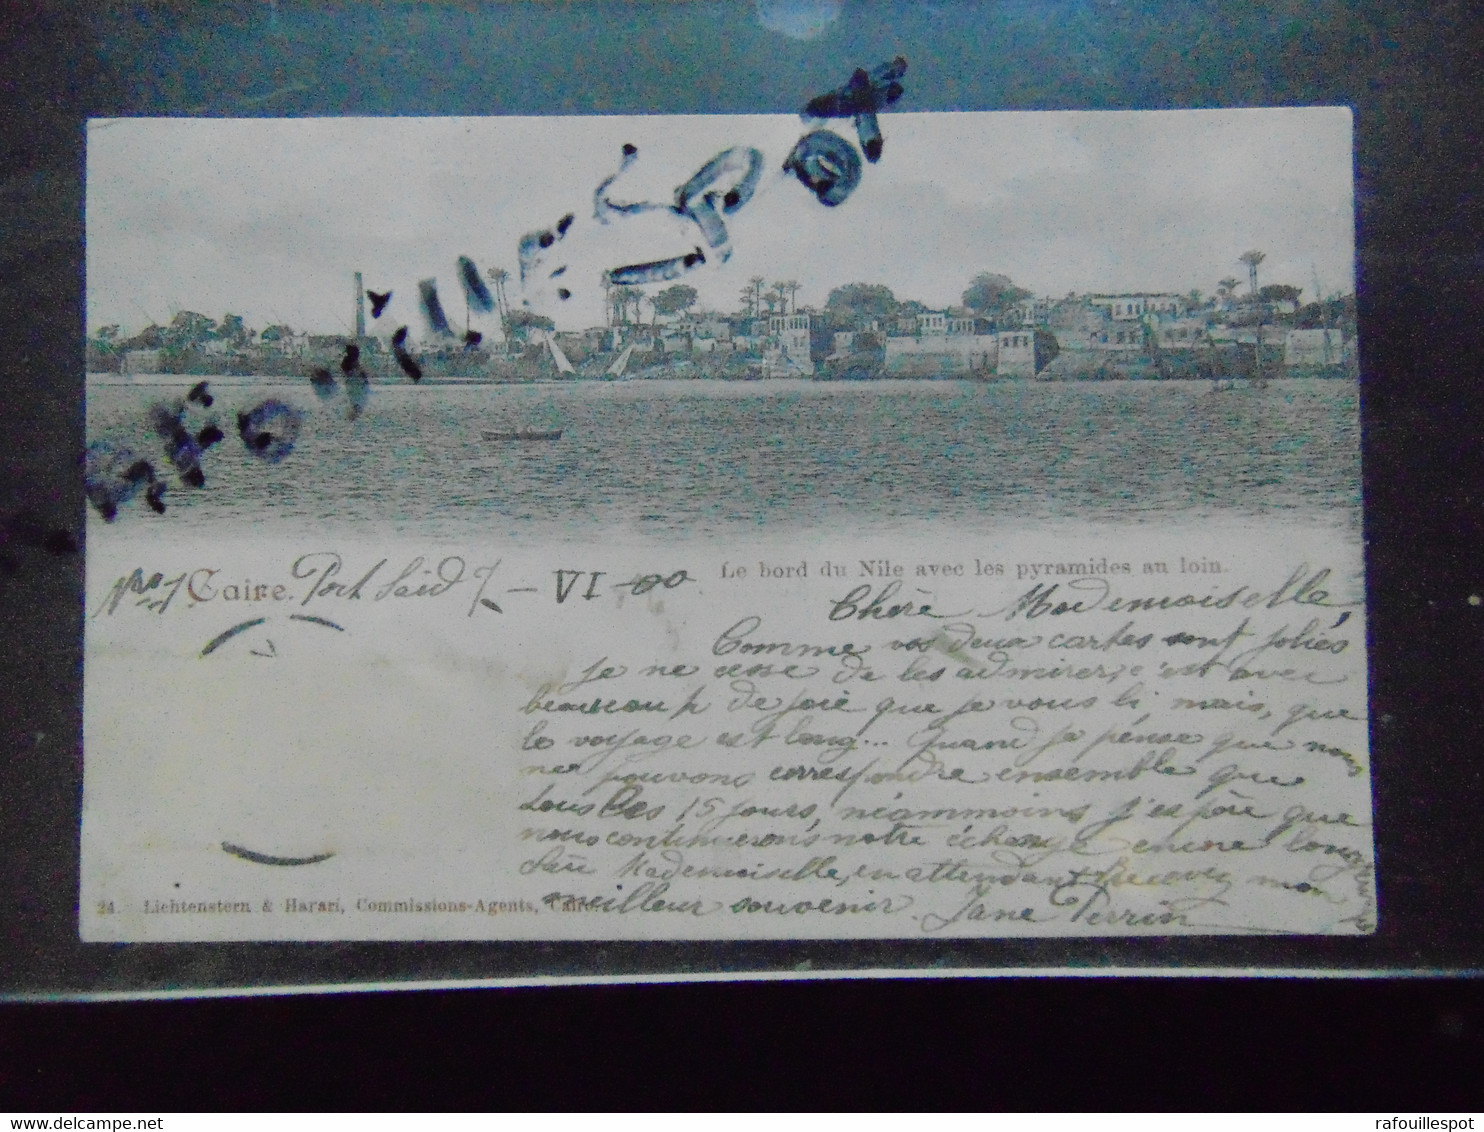 RAFOUILLESPOT
Le bord du Nile avec les pyramides au loin.
No 1 Caire. Port Saïd 7 - VI - 00
Chère Mademoiselle,
Comme vos deux cartes sont jolies
je ne cesse de les admirer, c'est avec
beaucoup de joie que je vous li, mais, que
le voyage est long... Quand je pense que nous
ne pouvons correspondre ensemble que
tous les 15 jours, néammoins j'espère que
nous continuerons notre échange encore longtemps
Mademoiselle, en attendant recevez mon
meilleur souvenir. Jane Perrin
24. Lichtenstern & Harari, Commissions-Agents, Cairo.
Delcampe.net
rafouillespot